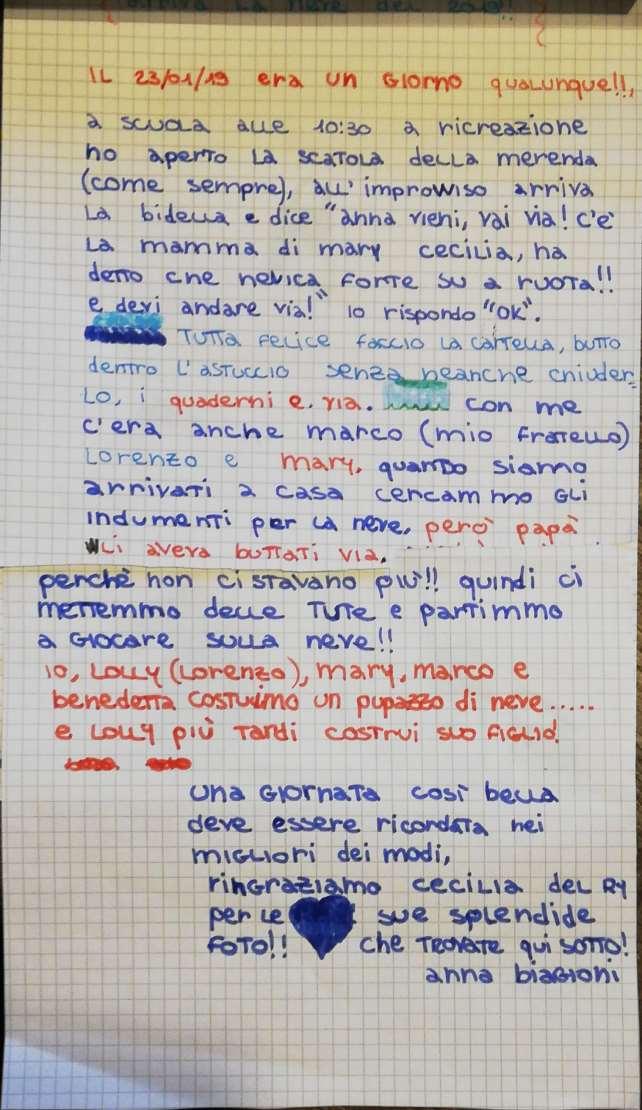 arriva La neve del 2019!!
IL 23/01/19 era un Giorno qualunque!!,
a scuola alle 10:30 a ricreazione
ho aperto La scatola della merenda
(come sempre), all'improvviso arriva
La bidella e dice "anna vieni, vai via! c'è
La mamma di mary cecilia, ha
detto che nevica forte su a ruota!!
e devi andare via!" io rispondo "OK".
Tutta felice faccio La cartella, butto
dentro L'astuccio senza neanche chiuder-
Lo, i quaderni e. via. con me
c'era anche marco (mio fratello)
Lorenzo e mary, quando siamo
arrivati a casa cercammo Gli
indumenti per La neve, però papà
Li aveva buttati via.
perchè non ci stavano più!! quindi ci
mettemmo delle Tute e partimmo
a Giocare sulla neve!!
io, Lolly (Lorenzo), mary, marco e
benedetta costruimo un pupazzo di neve.....
e Lolly più Tardi costrui suo figlio!
una Giornata così bella
deve essere ricordata nei
migliori dei modi,
ringraziamo cecilia del Ry
per Le sue splendide
foto!! che Trovate qui sotto!
anna biagioni